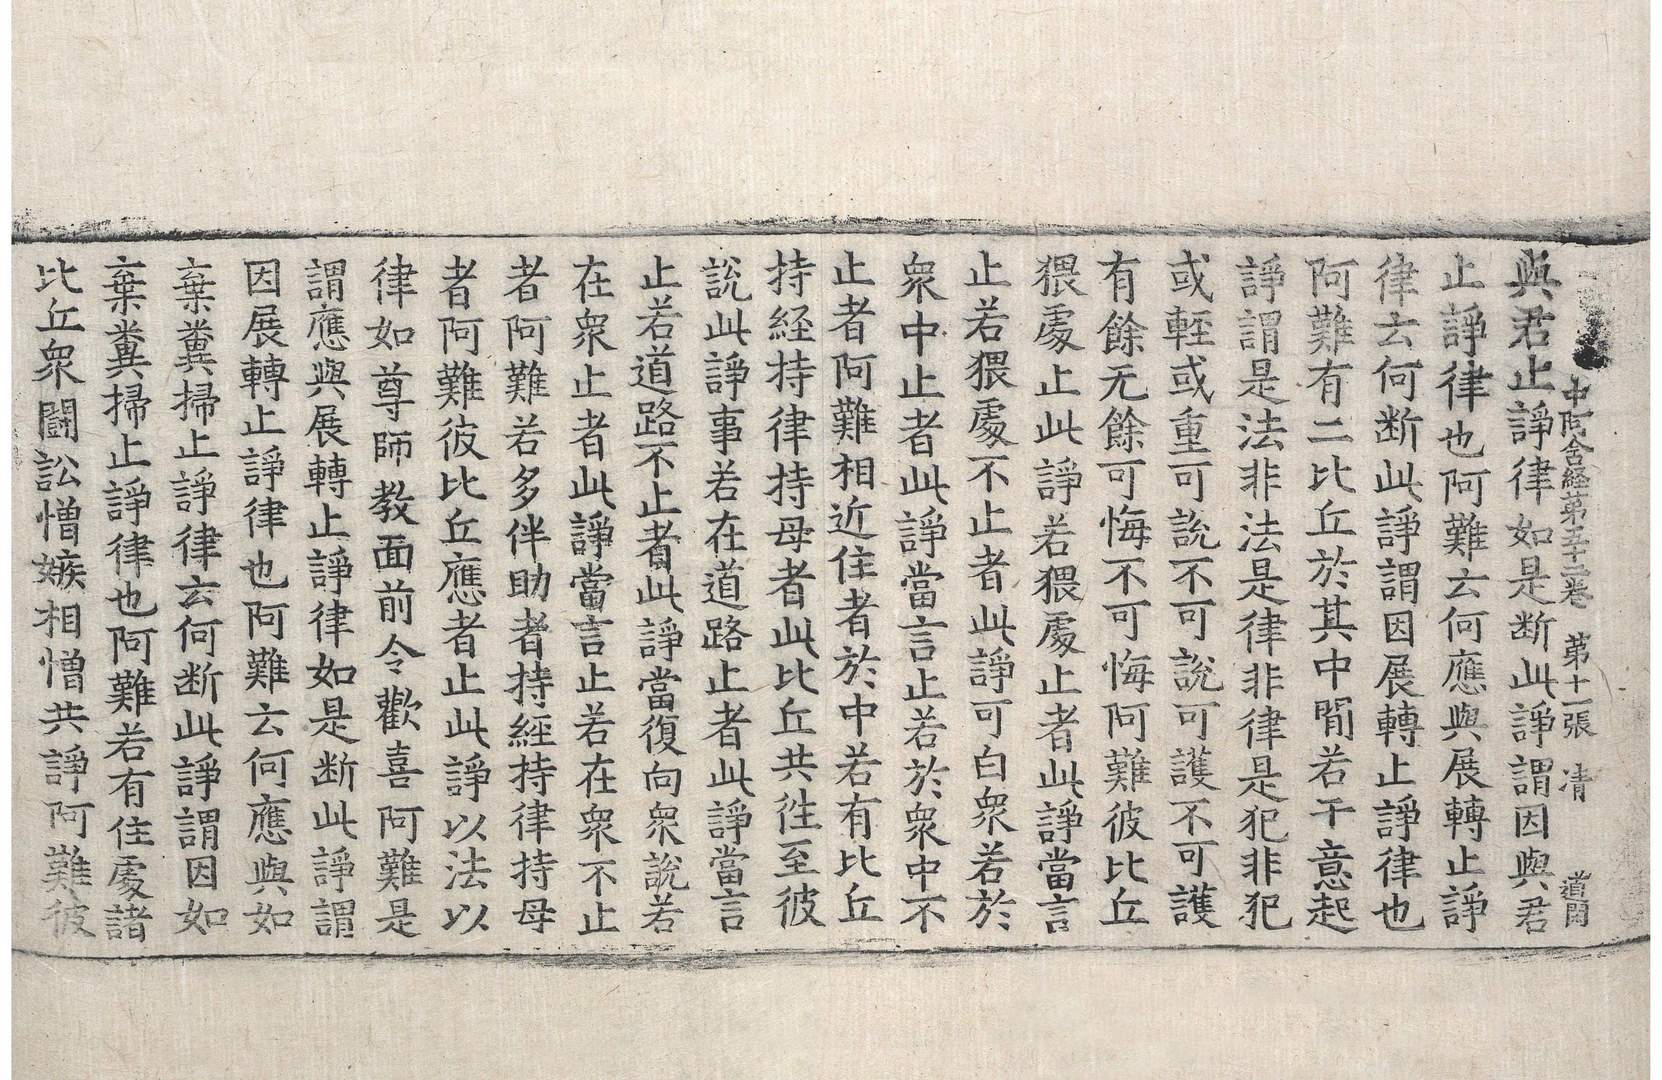 中阿含経第五十二卷 第十一張 清 道開
與君止諍律如是断此諍謂因與君
止諍律也阿難云何應與展轉止諍
律云何断此諍謂因展轉止諍律也
阿難有二比丘於其中間若干意起
諍謂是法非法是律非律是犯非犯
或輕或重可說不可說可護不可護
有餘无餘可悔不可悔阿難彼比丘
猥處止此諍若猥處止者此諍當言
止若猥處不止者此諍可白衆若於
衆中止者此諍當言止若於衆中不
止者阿難相近住者於中若有比丘
持経持律持母者此比丘共往至彼
說此諍事若在道路止者此諍當言
止若道路不止者此諍當復向衆說若
在衆止者此諍當言止若在衆不止
者阿難若多伴助者持經持律持母
者阿難彼比丘應者止此諍以法以
律如尊師教面前令歡喜阿難是
謂應與展轉止諍律如是断此諍謂
因展轉止諍律也阿難云何應與如
棄糞掃止諍律云何断此諍謂因如
棄糞掃止諍律也阿難若有住處諸
比丘衆闘訟憎嫉相憎共諍阿難彼